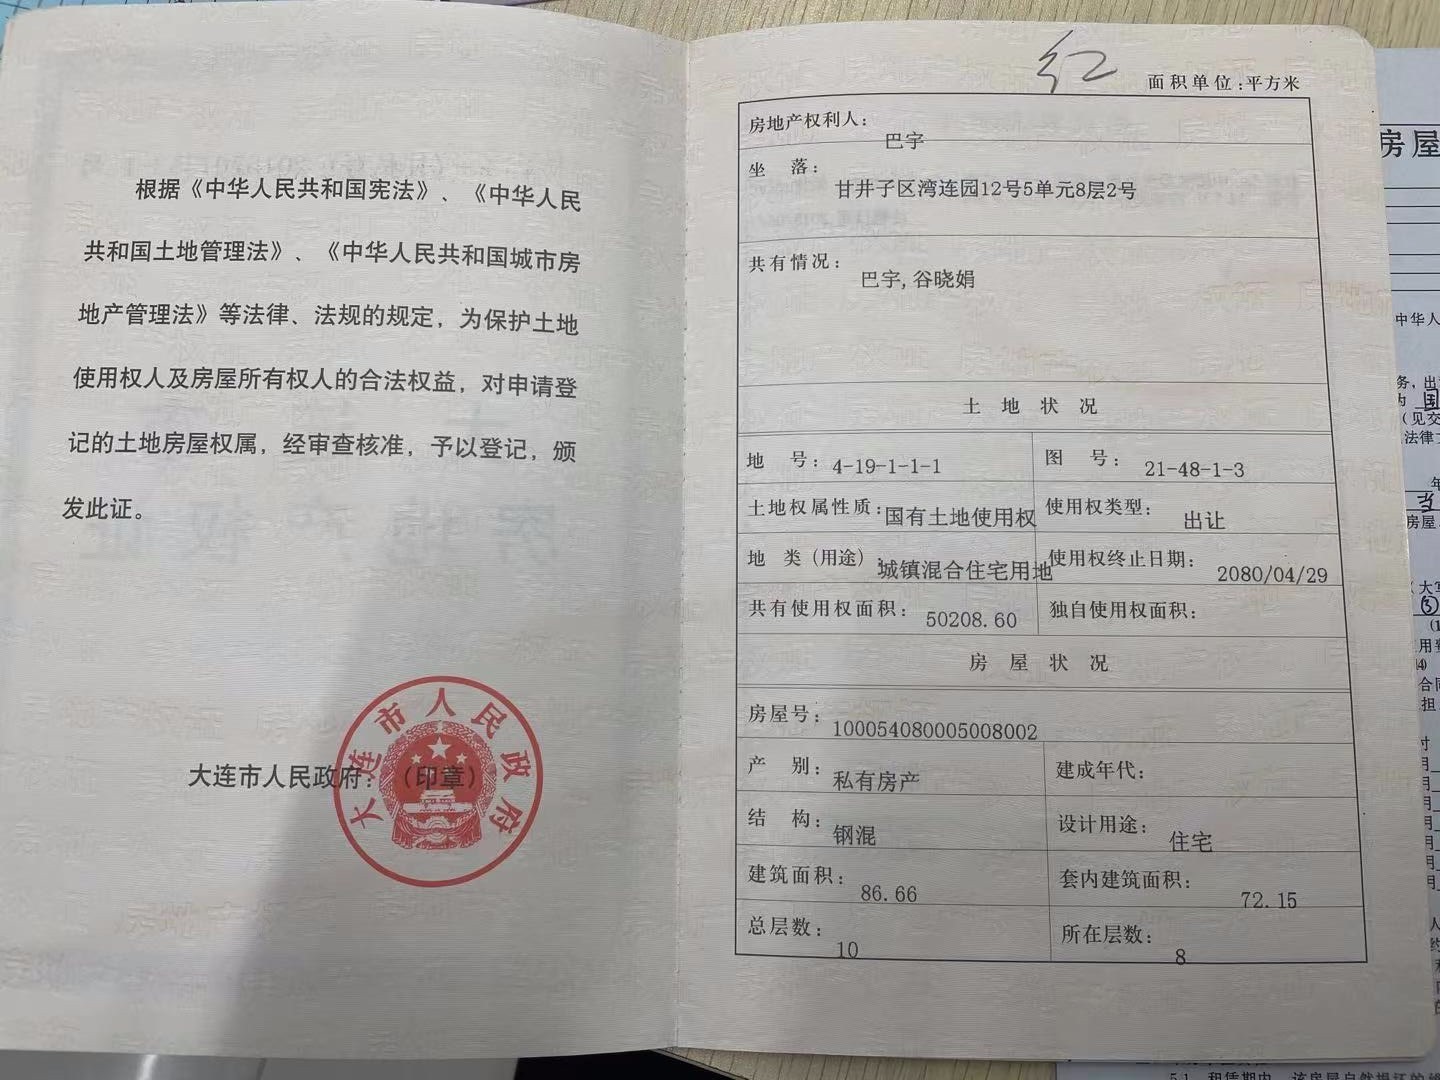 根据《中华人民共和国宪法》、《中华人民
共和国土地管理法》、《中华人民共和国城市房
地产管理法》等法律、法规的规定，为保护土地
使用权人及房屋所有权人的合法权益，对申请登
记的土地房屋权属，经审查核准，予以登记，颁
发此证。
大连市人民政府：（印章）
大连市人民政府
红
面积单位:平方米
房地产权利人：巴宇
坐 落：甘井子区湾连园12号5单元8层2号
共有情况：巴宇,谷晓娟
土地状况
地 号：4-19-1-1-1 图 号：21-48-1-3
土地权属性质：国有土地使用权 使用权类型：出让
地 类（用途）：城镇混合住宅用地 使用权终止日期：2080/04/29
共有使用权面积：50208.60 独自使用权面积：
房屋状况
房屋号：100054080005008002
产 别：私有房产 建成年代：
结 构：钢混 设计用途：住宅
建筑面积：86.66 套内建筑面积：72.15
总层数：10 所在层数：8
房屋
中华人
务，出
国
（见交
法律
年
房屋
（大写
合同
担
5.1 租赁期内，该房屋自然损坏的